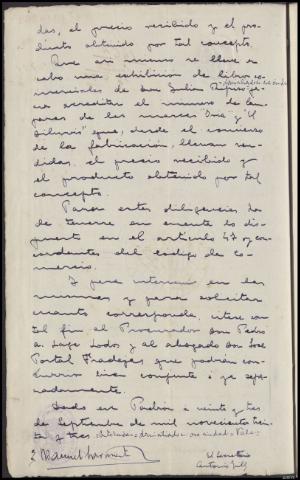 das, el precio recibido y el pro-
ducto obtenido por tal concepto.
Que asi mismo se lleve a
cabo una exhibicion de libros co-
merciales de Don Julian pa-
ra acreditar el numero de lam-
paras de las marcas "Iria" y "El
que, desde el comienzo
de la fabricación, llevan ven-
didas, el precio recibido y
el producto obtenido por tal
concepto.
Para estas diligencias ha
de tenerse en cuenta lo dis-
puesto en el artículo 47 y con-
cordantes del codigo de Co-
mercio.
Y para intervenir en las
mismas y para solicitar
cuanto corresponda, cítese con
tal fin al Procurador don Pedro
A. Lage Lodos y al abogado don José
Portal Fradejas que podrán con-
currir bien conjunta o se-
paradamente.
Dado en Padrón a veinte y tres
de septiembre de mil novecientos trein-
ta y tres
El Secretario
Antonio